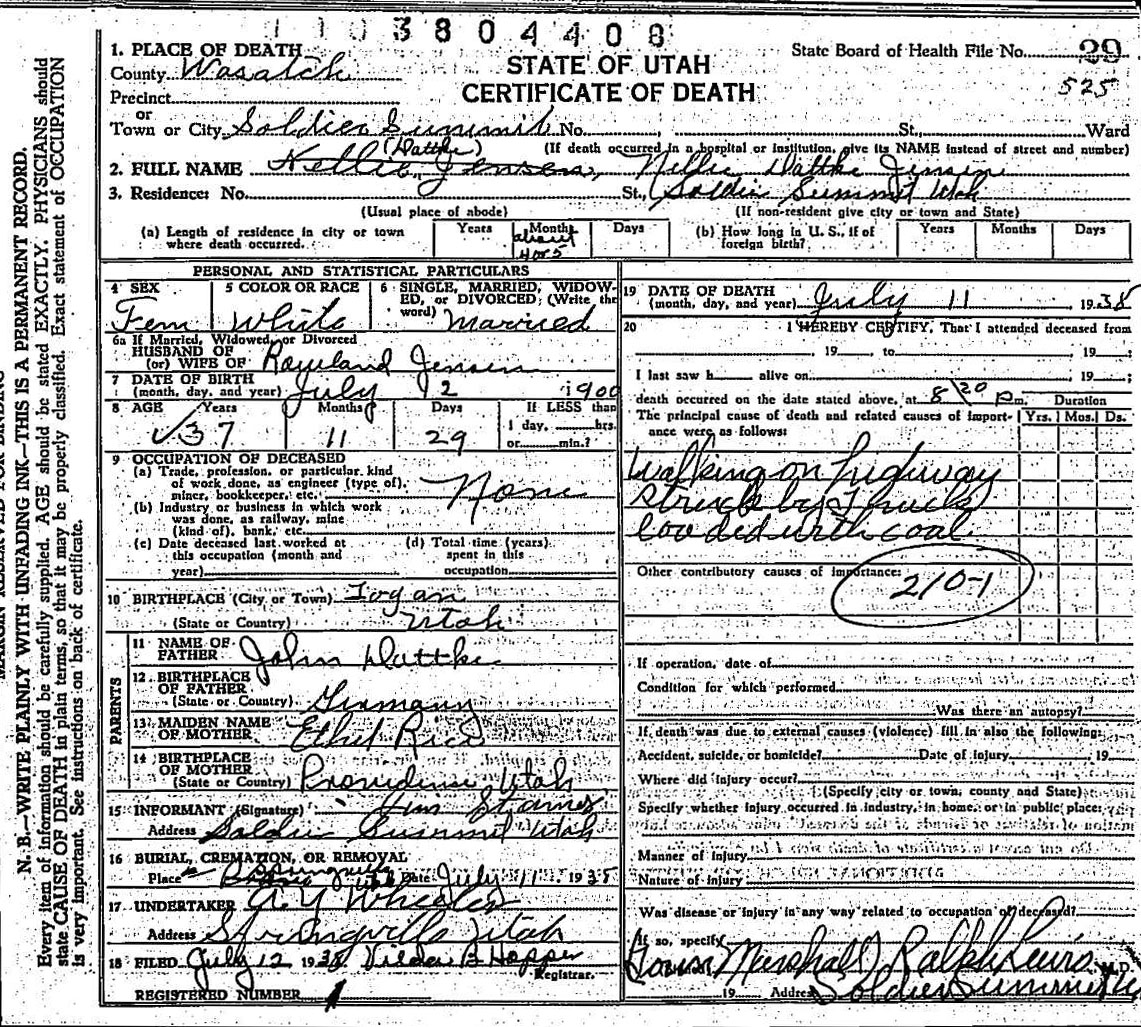 1 1 0 3 8 0 4 4 0 8
1. PLACE OF DEATH
County Wasatch
STATE OF UTAH
CERTIFICATE OF DEATH
State Board of Health File No. 29
525
Precinct
or
Town or City Soldier Summit No. , St., Ward
(Dattke) (If death occurred in a hospital or institution, give its NAME instead of street and number)
2. FULL NAME Nellie Jensen, Nellie Dattke Jensen
3. Residence: No. St., Soldier Summit Utah
(Usual place of abode) (If non-resident give city or town and State)
(a) Length of residence in city or town where death occurred. Years Months about 4 or 5 Days
(b) How long in U. S., if of foreign birth? Years Months Days
PERSONAL AND STATISTICAL PARTICULARS
4 SEX Fem
5 COLOR OR RACE White
6 SINGLE, MARRIED, WIDOWED, or DIVORCED: (Write the word) Married
6a If Married, Widowed, or Divorced
HUSBAND OF
(or) WIFE OF Rowland Jensen
7 DATE OF BIRTH
(month, day, and year) July 12 1900
8 AGE Years 37 Months 11 Days 29
If LESS than
1 day, hrs.
or min.?
9 OCCUPATION OF DECEASED
(a) Trade, profession, or particular kind
of work done, as engineer (type of),
miner, bookkeeper, etc. None
(b) Industry or business in which work
was done, as railway, mine
(kind of), bank, etc.
(c) Date deceased last worked at
this occupation (month and
year)
(d) Total time (years)
spent in this
occupation
10 BIRTHPLACE (City or Town) Logan
(State or Country) Utah
PARENTS
11 NAME OF
FATHER John Dattke
12 BIRTHPLACE
OF FATHER
(State or Country) Germany
13 MAIDEN NAME
OF MOTHER Ethel Rice
14 BIRTHPLACE
OF MOTHER
(State or Country) Providence Utah
15 INFORMANT (Signature)
Address Soldier Summit Utah
16 BURIAL, CREMATION, OR REMOVAL
Place Springville Date July 11 1938
17 UNDERTAKER A Y Wheeler
Address Springville Utah
18 FILED July 12 1938 Vilda B Hopper
Registrar.
REGISTERED NUMBER 1
19 DATE OF DEATH
(month, day, and year) July 11 1938
20 I HEREBY CERTIFY, That I attended deceased from
, 19 , to , 19 ;
I last saw h alive on , 19 ;
death occurred on the date stated above, at 8 20 p m. Duration
The principal cause of death and related causes of importance were as follows: Yrs. Mos. Ds.
Walking on highway
struck by Truck
loaded with coal
Other contributory causes of importance:
210-1
If operation, date of
Condition for which performed
Was there an autopsy?
If death was due to external causes (violence) fill in also the following:
Accident, suicide, or homicide? Date of injury , 19
Where did injury occur?
(Specify city or town, county and State)
Specify whether injury occurred in industry, in home, or in public place:
Manner of Injury
Nature of injury
Was disease or injury in any way related to occupation of deceased?
If so, specify
Marshall Ralph Lewis M.D.
19 Address Soldier Summit
MARGIN RESERVED FOR BINDING
N. B.—WRITE PLAINLY WITH UNFADING INK—THIS IS A PERMANENT RECORD.
Every item of information should be carefully supplied. AGE should be stated EXACTLY. PHYSICIANS should
state CAUSE OF DEATH in plain terms, so that it may be properly classified. Exact statement of OCCUPATION
is very important. See instructions on back of certificate.